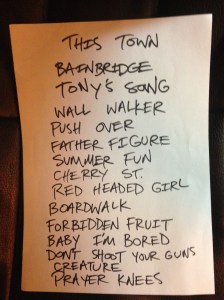 THIS TOWN
BAINBRIDGE
TONY'S SONG
WALL WALKER
PUSH OVER
FATHER FIGURE
SUMMER FUN
CHERRY ST.
RED HEADED GIRL
BOARDWALK
FORBIDDEN FRUIT
BABY I'M BORED
DONT SHOOT YOUR GUNS
CREATURE
PRAYER KNEES